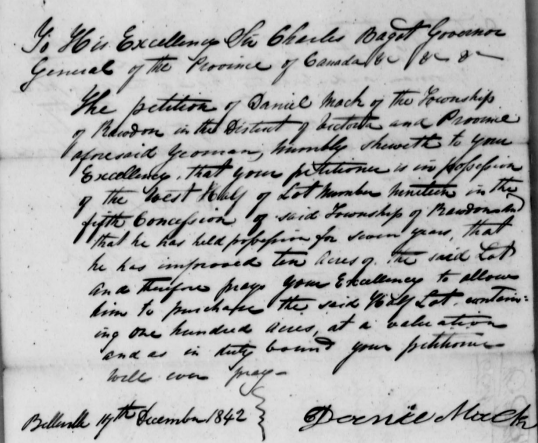 To His Excellency Sir Charles Bagot Governor
General of the Province of Canada &c &c &c
The petition of Daniel Mack of the Township
of Rawdon in the District of Victoria and Province
aforesaid Yeoman, humbly sheweth to your
Excellency, that your petitioner is in possession
of the West Half of Lot Number Nineteen in the
fifth Concession of said Township of Rawdon and
that he has held possession for seven years, that
he has improved ten acres of the said Lot
and therefore prays your Excellency to allow
him to purchase the said Half Lot contain=
ing one hundred acres, at a valuation
and as in duty bound your petitioner
will ever pray—
Belleville 19th December 1842 } Daniel Mack